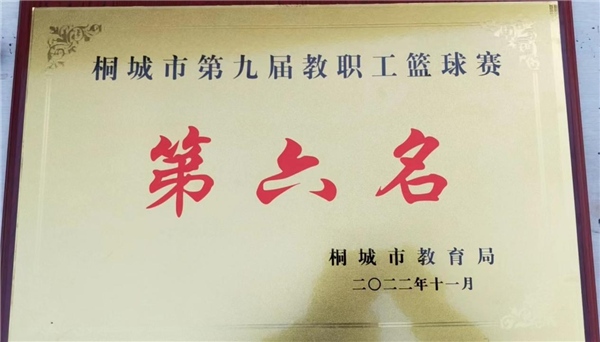 桐城市第九届教职工篮球赛
第六名
桐城市教育局
二〇二二年十一月